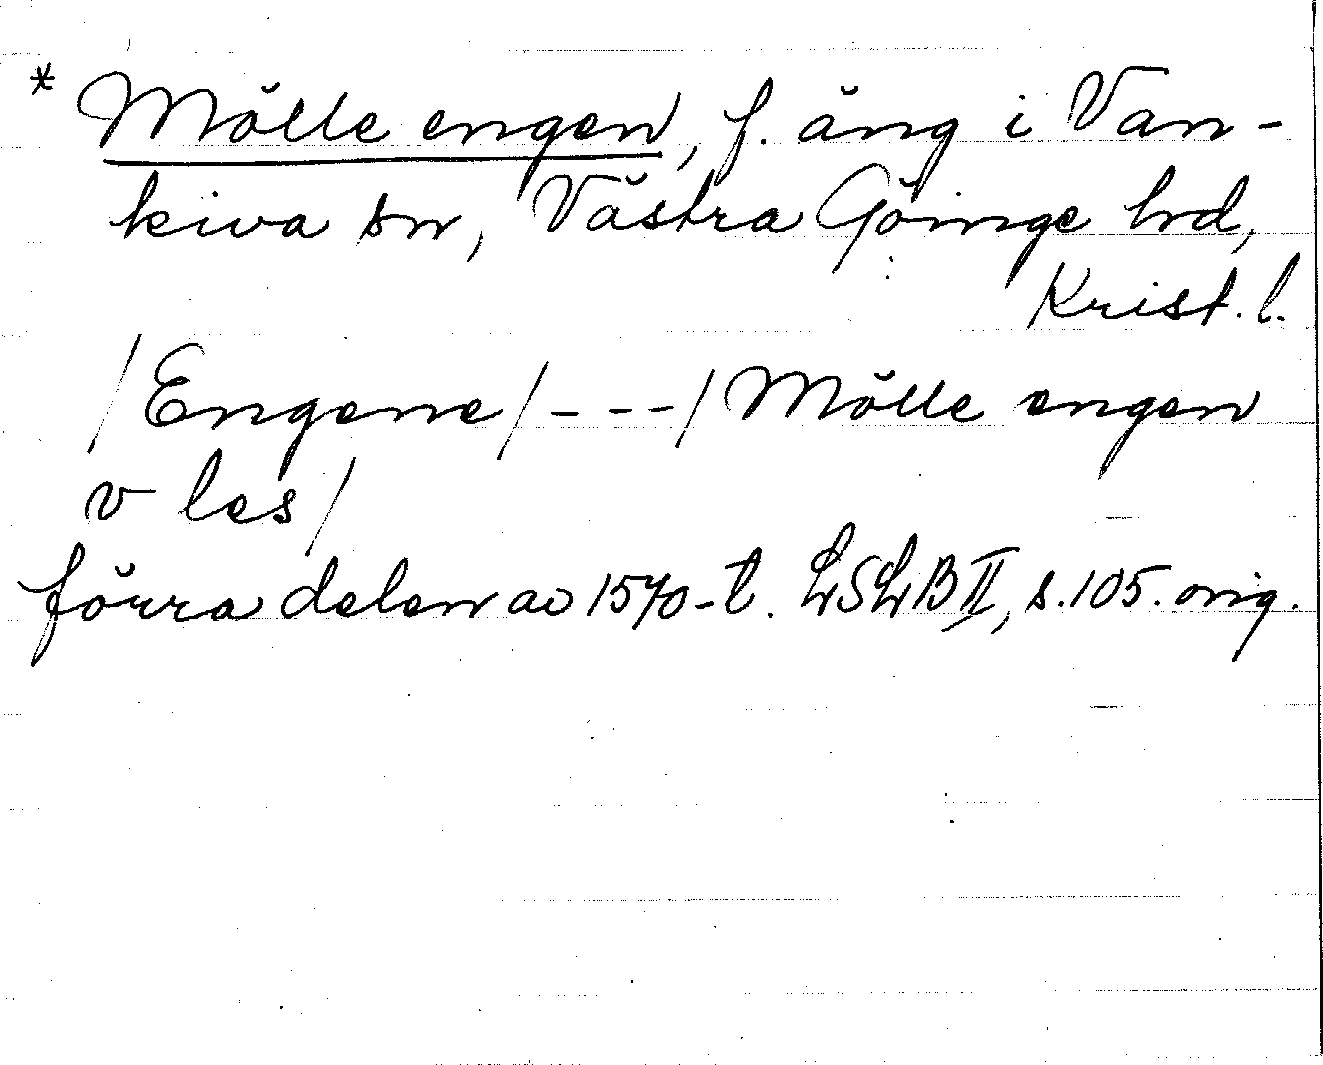 * Mölle engen, f. äng i Van-
kiva sn, Västra Göinge hd,
Krist. l.
/Engene/---/Mölle engen
v les/
förra delen av 1570-t. LSLB II, s. 105. orig.